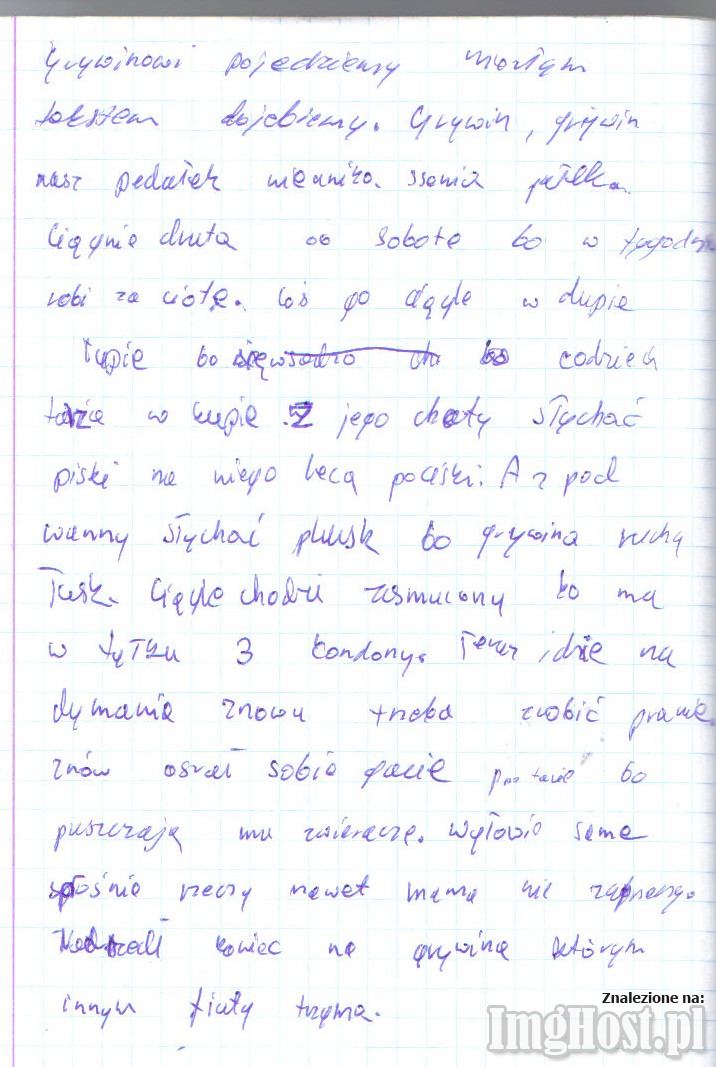 Grywinowi pojedziemy
tekstem dojebiemy. Grywin, grywin
nasz pedałek ssania pałka.
Ciągnie druta co sobote bo w tygodn
robi za ciote. Coś go ciągle w dupie
łupie bo codzień
w kupie. Z jego chaty słychać
piski na niego lecą pociski. A z pod
wanny słychać plusk bo grywina rucha
Tusk. Ciągle chodzi zasmucony bo ma
w tyłku 3 kondony. Teraz idzie na
dymania znowu trzeba zrobić pranie.
znów osrał sobie gacie bo
puszczają mu zwieracze. wyłowie same
sprośnie rzeczy nawet mama nie zaprzeczy.
Nadszedł koniec na grywina którym
innym fiuty trzyma.
Znalezione na:
ImgHost.pl